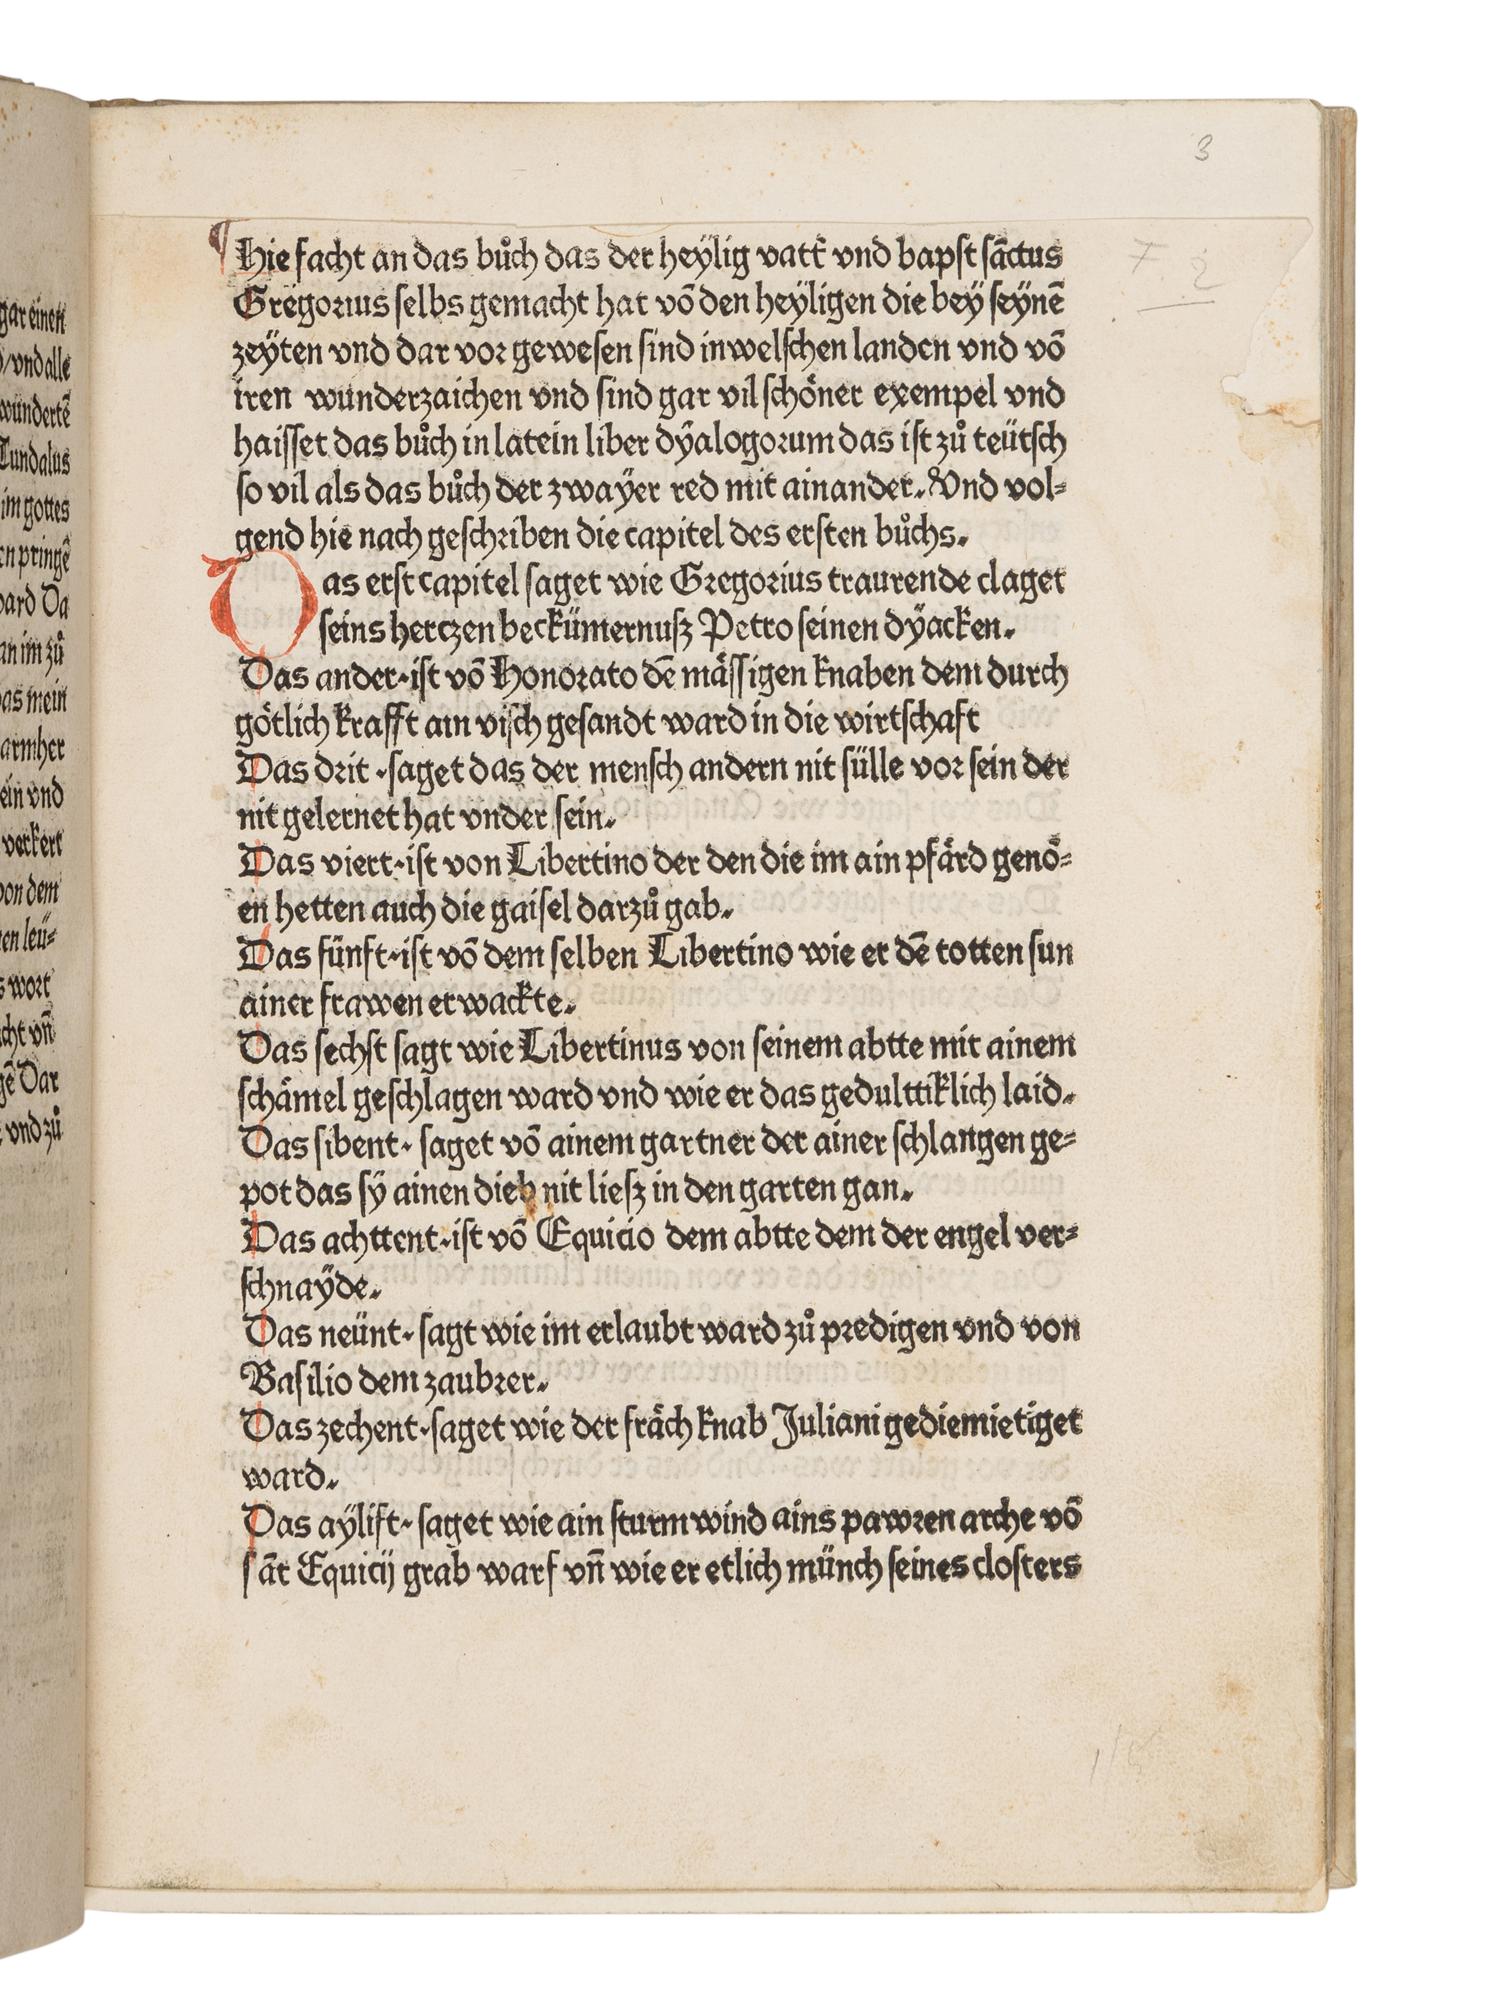 gar einen
/ vnd alle
wundertē
Tundalus
im gottes
en pringē
ward Da
an im zů
as mein
armher
ein vnd
verkert
von dem
en leü⸗
s wort
cht vn̄
gē Dar
vnd zů
3
F. 2
¶ Hie facht an das bůch das der heÿlig vatt̄ vnd bapst sāctus
Gregorius selbs gemacht hat vō den heÿligen die beÿ seÿnē
zeÿten vnd dar vor gewesen sind in welschen landen vnd vō
iren wunderzaichen vnd sind gar vil schöner exempel vnd
haisset das bůch in latein liber dÿalogorum das ist zů teütsch
so vil als das bůch der zwaÿer red mit ainander. Vnd vol⸗
gend hie nach geschriben die capitel des ersten bůchs.
Das erst capitel saget wie Gregorius traurende claget
seins hertzen beckümernusz Petro seinen dÿacken.
Das ander·ist vō Honorato dē mässigen knaben dem durch
götlich krafft ain visch gesandt ward in die wirtschaft
Das drit·saget das der mensch andern nit sülle vor sein der
nit gelernet hat vnder sein.
Das viert·ist von Libertino der den die im ain pfärd genō⸗
en hetten auch die gaisel darzů gab.
Das fünft·ist vō dem selben Libertino wie er dē totten sun
ainer frawen erwackte.
Das sechst sagt wie Libertinus von seinem abtte mit ainem
schämel geschlagen ward vnd wie er das gedulttiklich laid.
Das sibent· saget vō ainem gartner der ainer schlangen ge⸗
pot das sÿ ainen dieb nit liesz in den garten gan.
Das achttent·ist vō Equicio dem abtte dem der engel ver⸗
schnaÿde.
Das neünt·sagt wie im erlaubt ward zů predigen vnd von
Basilio dem zaubrer.
Das zechent·saget wie der fräch knab Juliani gediemietiget
ward.
Das aÿlift·saget wie ain sturmwind ains pawren arche vō
sāt Equicij grab warf vn̄ wie er etlich münch seines closters